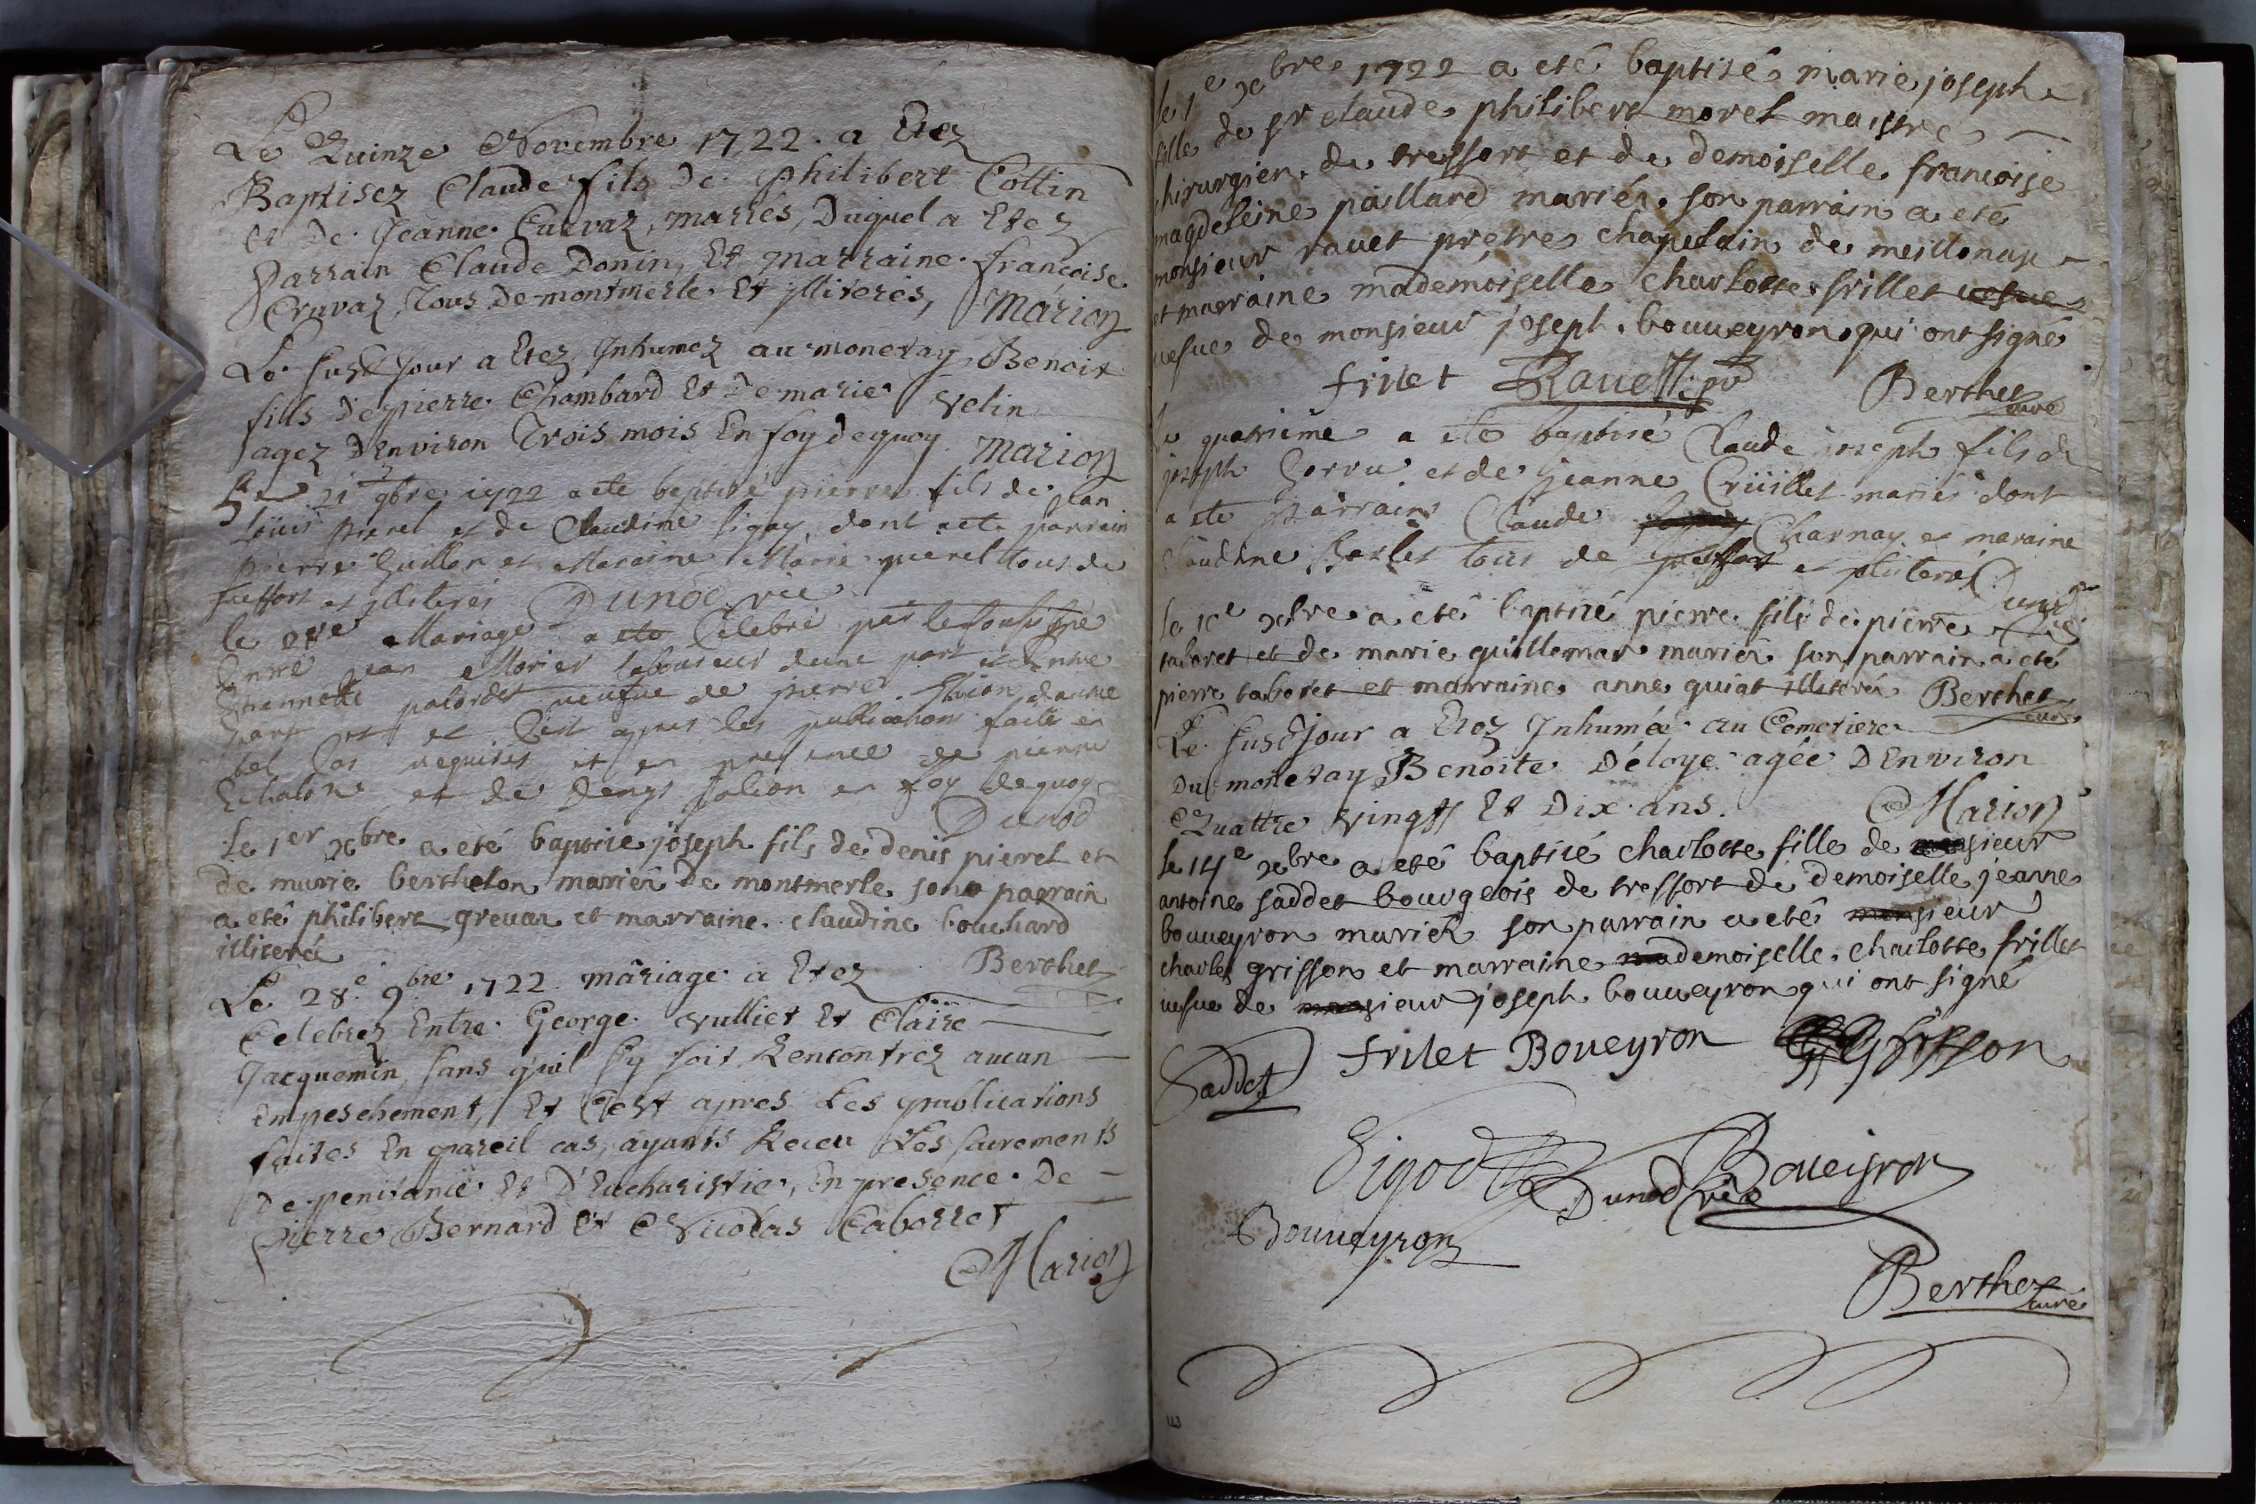 Le Quinze Novembre 1722. a Etez
Baptisez Claude fils De philibert Collin
et De Jeanne Cruvaz, mariés, Duquel a Etez
Parrain Claude Donin, Et marraine francoise
Cruvaz, Tous De montmerle Et illiteres, Marion
Le susd Jour a Etez Inhumez au monetay Benoit
fills De pierre Chambard Et De marie Velin
agez DEnviron Trois mois En foy dequoy Marion
Le 21e 9bre 1722 a ete baptisé pierre fils de Jean
Louis pierel et de Claudine ligay dont a ete parrain
pierre Guillon et Maraine Marie pierel tous de
et illiterés Dunod vic
le Mariage a ete Celebré par le soussigné
Entre jean Morier laboureur d'une part et Entre
veufue de pierre d'autre
part et c'est apres les publications faite en
tel Cas requises et en presence de pierre
et de Denys en foy dequoy
Dunod
Le 1er xbre a eté baptise joseph fils de denis pierel et
de marie berthelon mariés de montmerle son parrain
a eté philibert grevaz et marraine claudine bouchard
illiteré Berthet
Le 28.e 9bre 1722 mariage a Etez
Celebrez Entre George Vulliet Et Claire
Jacquemin, sans quil sy soit Rencontrez aucun
Empeschement, Et C'est apres Les publications
faites En pareil cas, ayants Receu Les sacrements
De penitance Et D'Eucharistie, En presence De
pierre Bernard Et Nicolas Caborret
Marion
le 1e xbre 1722 a eté baptisé marie joseph
fille de sr claude philibert morel maistre
chirurgien de tressort et de demoiselle francoise
magdeleine paillard mariés son parrain a eté
monsieur ravet pretre chapelain de meillonax
et marraine mademoiselle charlotte frillet vesve
vesve de monsieur joseph bouveyron qui ont signé
frilet Ravet ptre Berthet curé
Le quatrieme a ete baptisé Claude joseph fils de
joseph et de Jeanne Cruillet mariés dont
a ete parrain Claude Charnay et maraine
Claudine tous de et illiterés Dunod
Le 10e xbre a eté baptisé pierre fils de pierre vic
taboret et de marie guillemar mariés son parrain a eté
pierre taboret et marraine anne guiat illiterés Berthet curé
Le susd Jour a Etez Inhumée au Cemetiere
Du monetay Benoite Déloye agée DEnviron
Quattre vingts Et Dix ans. Marion
le 14e xbre a eté baptisé charlotte fille de monsieur
antoine saddet bourgeois de tressort de demoiselle jeanne
bouveyron mariés son parrain a eté monsieur
charles grisson et marraine mademoiselle charlotte frillet
vesve de monsieur joseph bouveyron qui ont signé
Saddet frilet Boveyron Grisson
Dunod vic Boveyron
Bouveyron
Berthet curé